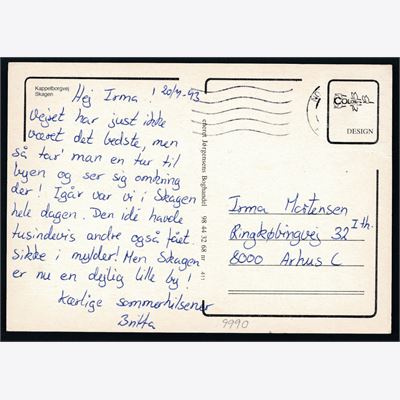 Kappelborgvej
Skagen
Hej Irma! 20/7-93
Vejret har just ikke
været det bedste, men
så ta'r man en tur til
byen og ser sig omkring
der! Igår var vi i Skagen
hele dagen. Den idé havde
tusindevis andre også fået.
Sikke i mylder! Men Skagen
er nu en dejlig lille by!
Kærlige sommerhilsener
Britta
eneret Jørgensens Boghandel 98 44 32 68 nr 411
COLOR
DESIGN
Irma Mortensen
Ringkøbingvej 32 I th.
8000 Århus C
9990